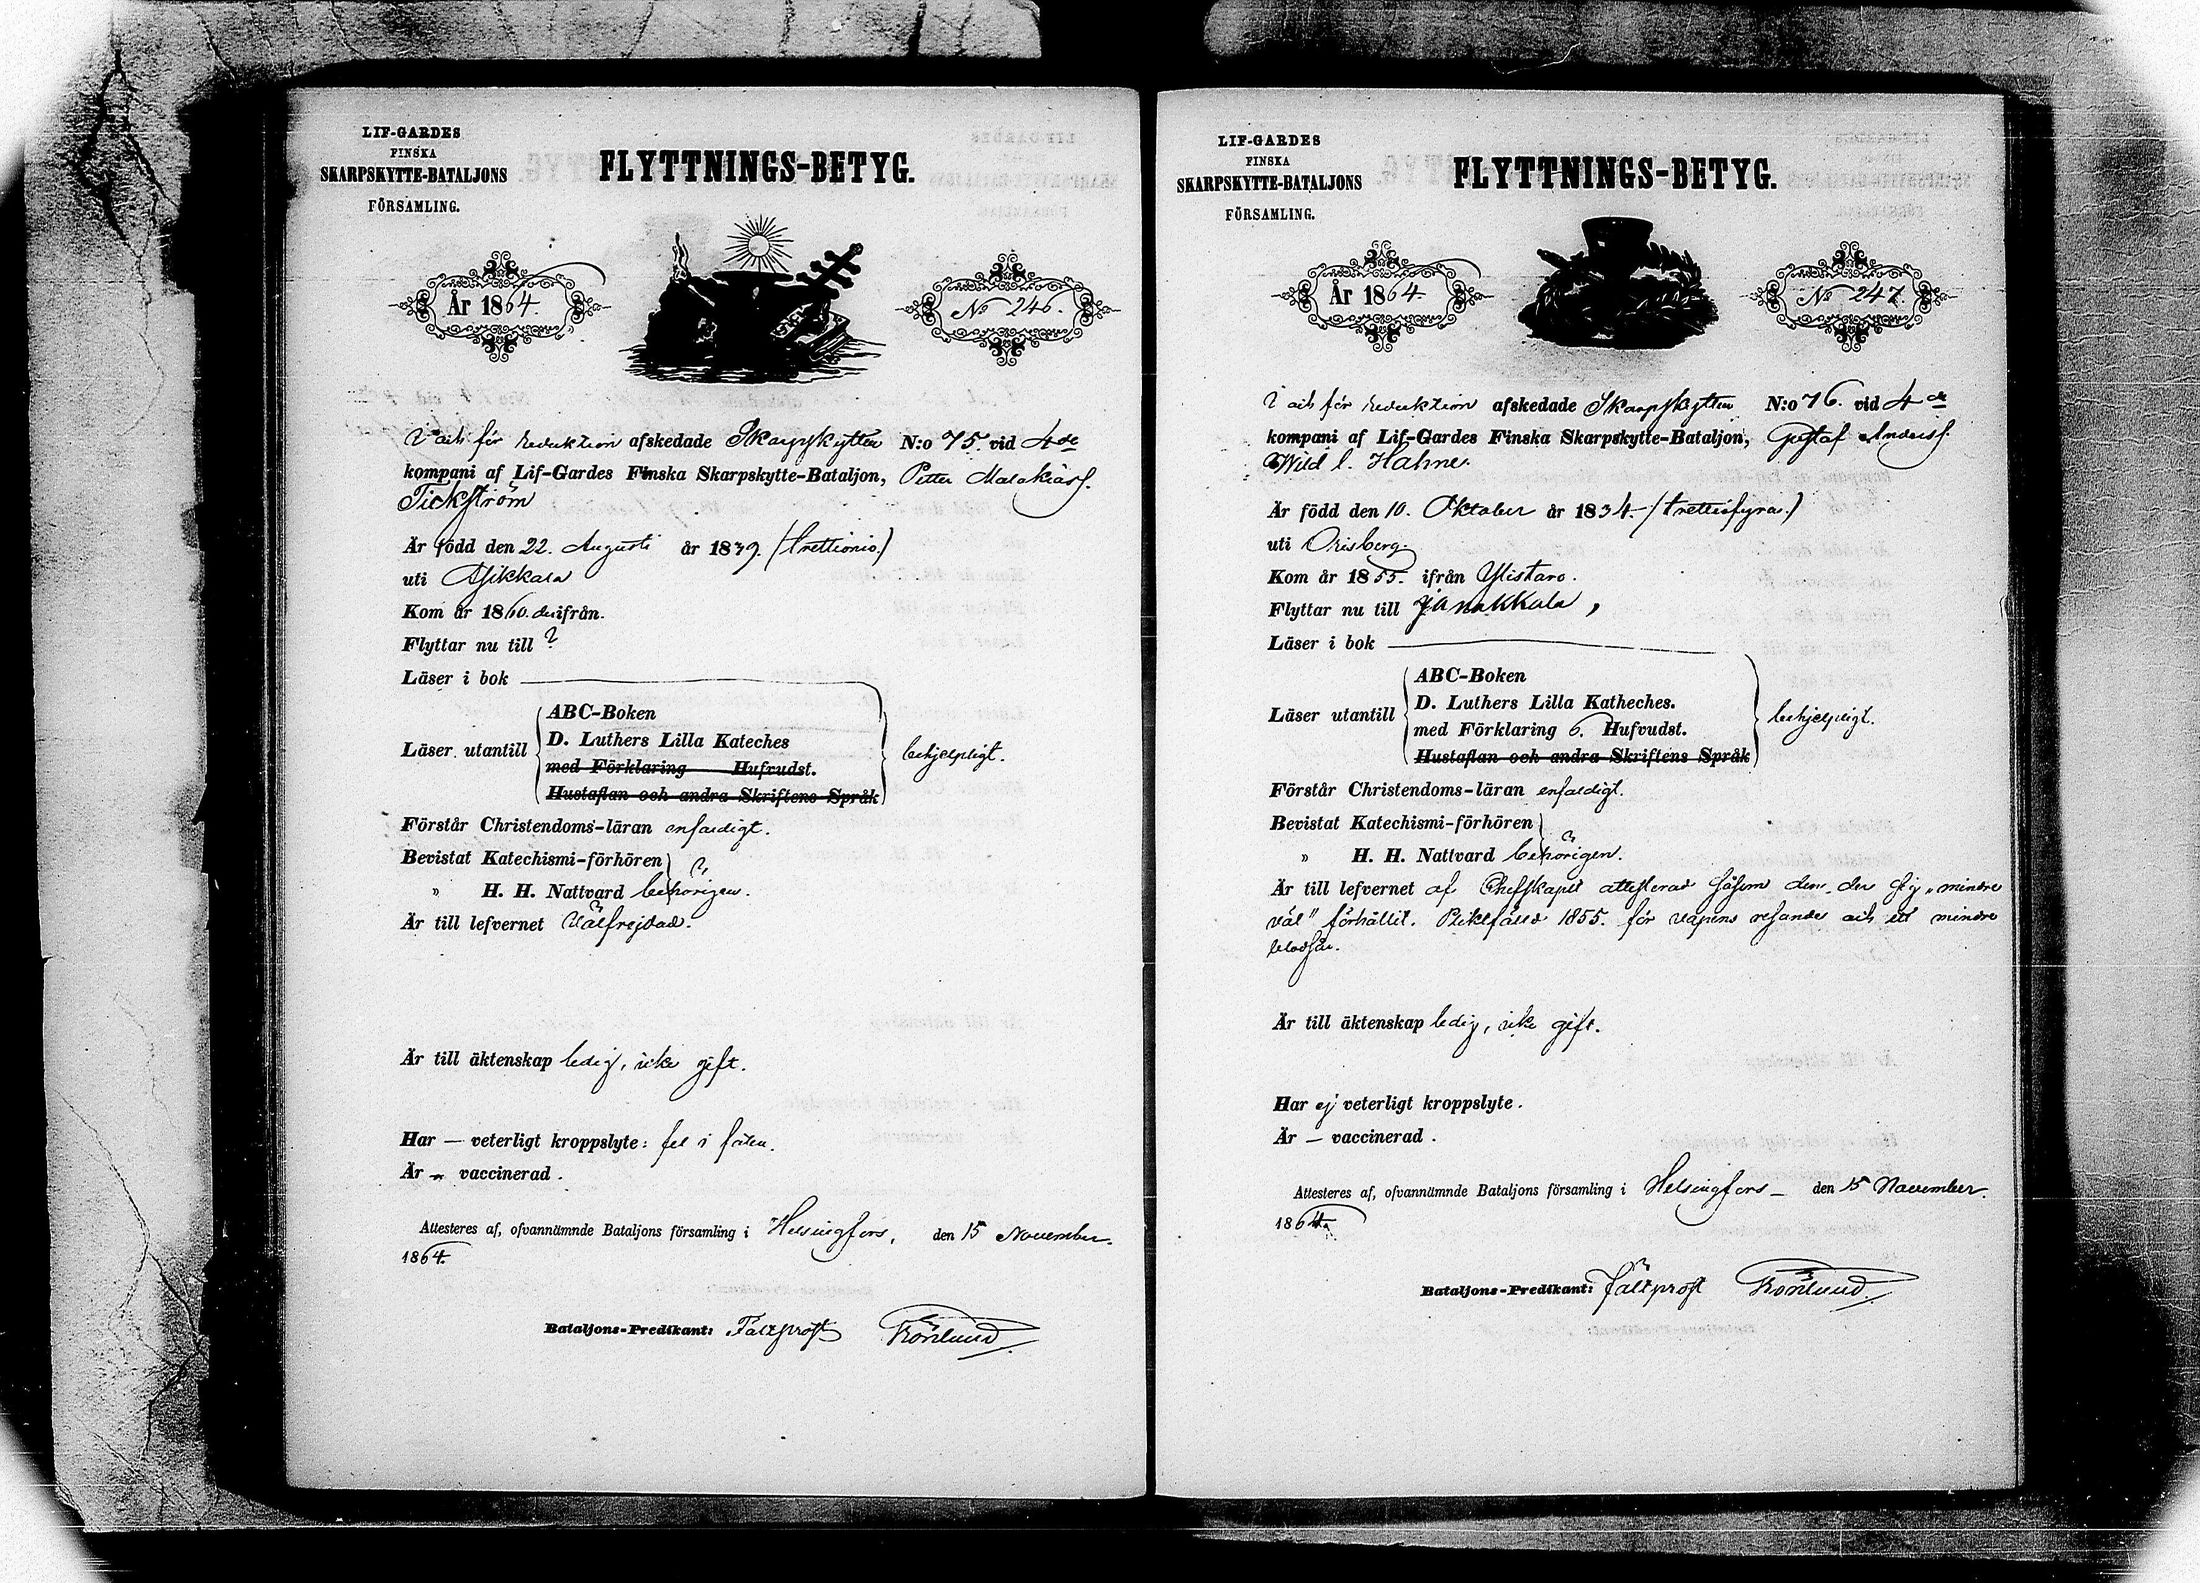 LIF-GARDES
FINSKA
SKARPSKYTTE-BATALJONS
FÖRSAMLING.
FLYTTNINGS-BETYG.
År 1864.
No 246.
för reduktion afskedade Skarpskytten N:o 75. vid 4de
kompani af Lif-Gardes Finska Skarpskytte-Bataljon, Petter Malakiass.
Tickström
Är född den 22. Augusti år 1839. (trettionio.)
uti Asikkala
Kom år 1860. derifrån.
Flyttar nu till ?
Läser i bok
Läser utantill
ABC-Boken
D. Luthers Lilla Kateches
med Förklaring Hufvudst.
Hustaflan och andra Skriftens Språk
behjelpligt.
Förstår Christendoms-läran enfaldigt.
Bevistat Katechismi-förhören
" H. H. Nattvard behörigen.
Är till lefvernet Välfrejdad.
Är till äktenskap ledig, icke gift.
Har — veterligt kroppslyte: fel i foten.
Är — vaccinerad.
Attesteres af, ofvannämnde Bataljons församling i Helsingfors, den 15 November
1864.
Bataljons-Predikant: Fältprost Rönlund.
LIF-GARDES
FINSKA
SKARPSKYTTE-BATALJONS
FÖRSAMLING.
FLYTTNINGS-BETYG.
År 1864.
No 247.
för reduktion afskedade Skarpskytten N:o 76. vid 4de
kompani af Lif-Gardes Finska Skarpskytte-Bataljon, Gustaf Anderss.
Wild l. Hahne.
Är född den 10. Oktober år 1834. (trettiofyra.)
uti Orisberg.
Kom år 1855. ifrån Ylistaro.
Flyttar nu till Janakkala,
Läser i bok
Läser utantill
ABC-Boken
D. Luthers Lilla Katheches.
med Förklaring 6. Hufvudst.
Hustaflan och andra Skriftens Språk
behjelpligt.
Förstår Christendoms-läran enfaldigt.
Bevistat Katechismi-förhören
" H. H. Nattvard behörigen.
Är till lefvernet af Chefskapet attesterad såsom den, der sig „mindre
väl" förhållit. Pliktfälld 1855. för vapens och ett mindre
blodsår.
Är till äktenskap ledig, icke gift.
Har ej veterligt kroppslyte.
Är — vaccinerad.
Attesteres af, ofvannämnde Bataljons församling i Helsingfors — den 15 November.
1864.
Bataljons-Predikant: Fältprost Rönlund.